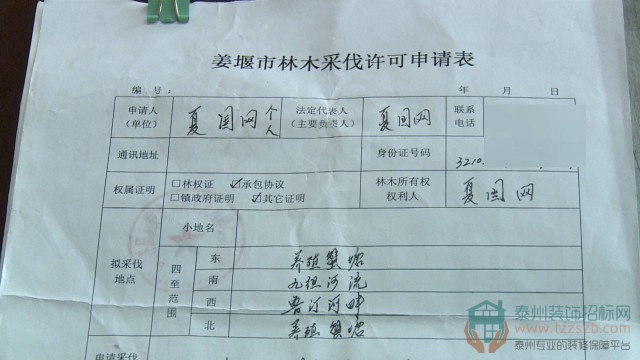 姜堰市林木采伐许可申请表
编 号： 年 月 日
申请人（单位） 夏国网个人 法定代表人（主要负责人） 夏国网 联系电话
通讯地址 身份证号码 3210
权属证明 □林权证 ☑承包协议 林木所有权权利人 夏国网
□镇政府证明 ☑其它证明
拟采伐地点 小地名
四至范围 东 养殖蟹塘
南 九组河流
西 鲁汀河畔
北 养殖蟹塘
申请采伐
泰州装饰招标网
www.tzzszb.com
泰州专业的装修保障平台